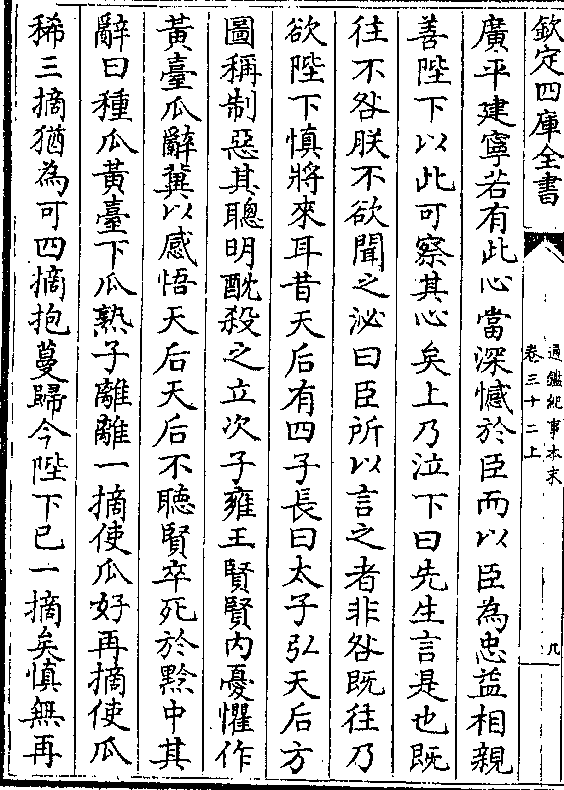 欽定四庫全書
通鑑紀事本末
卷三十二上
九
廣平建寧若有此心當深憾於臣而以臣為忠益相親
善陛下以此可察其心矣上乃泣下曰先生言是也既
往不咎朕不欲聞之泌曰臣所以言之者非咎既往乃
欲陛下慎將來耳昔天后有四子長曰太子弘天后方
圖稱制惡其聰明酖殺之立次子雍王賢賢内憂懼作
黃臺瓜辭冀以感悟天后天后不聽賢卒死於黔中其
辭曰種瓜黃臺下瓜熟子離離一摘使瓜好再摘使瓜
稀三摘猶為可四摘抱蔓歸今陛下已一摘矣慎無再